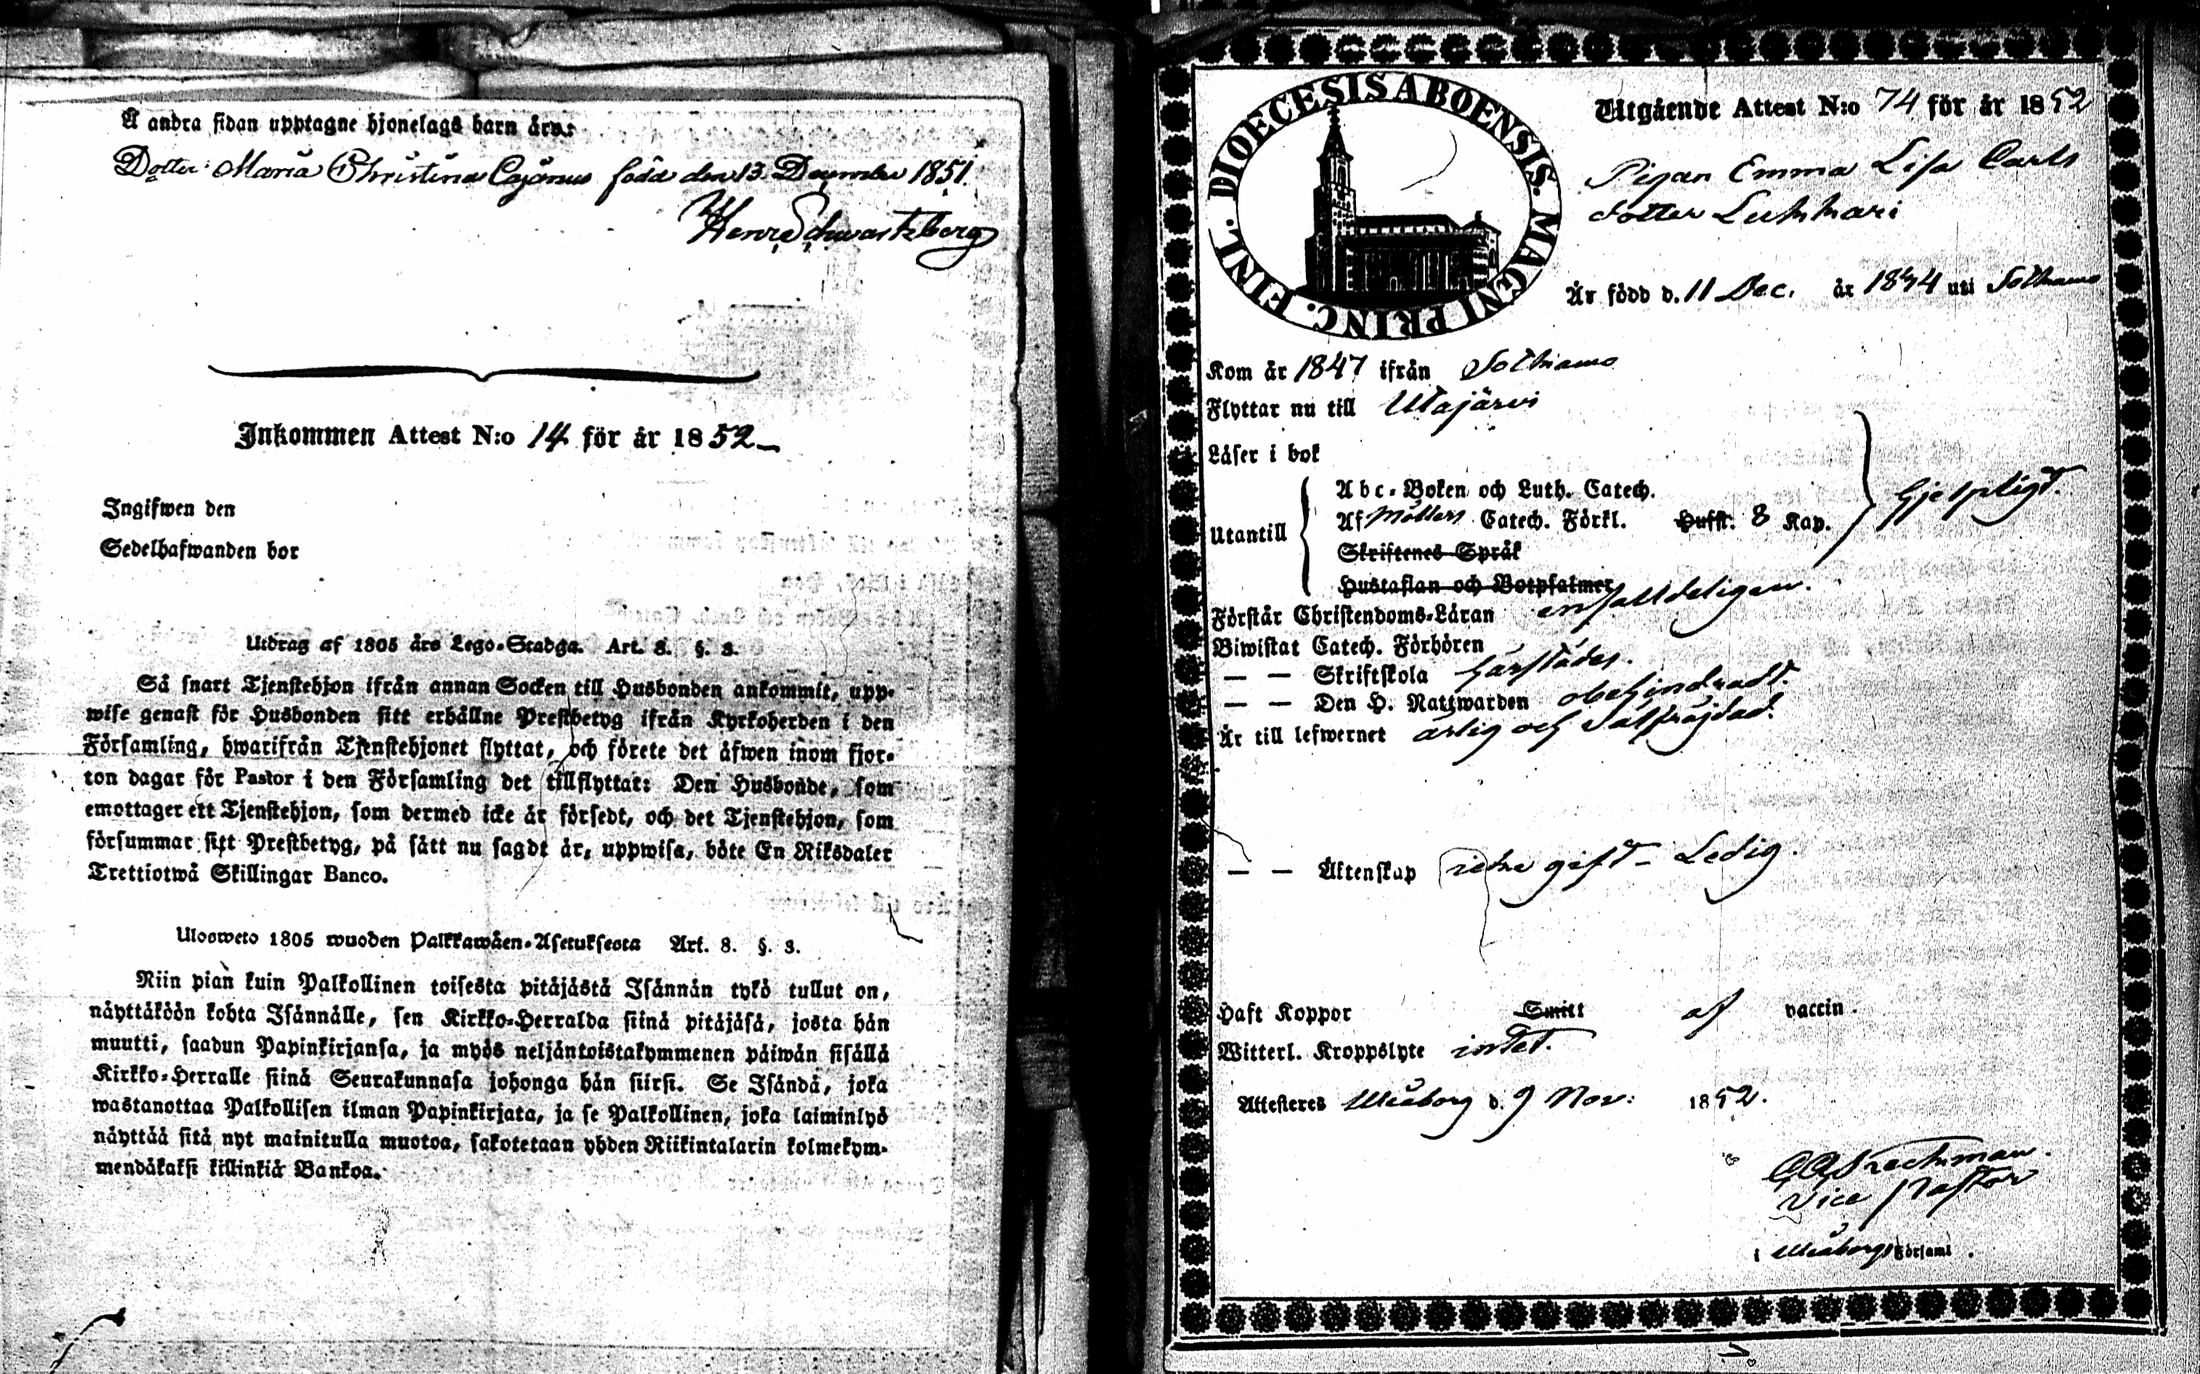 Å andra sidan upptagne hjonelags barn äro:
Dotter Maria Christina Cajanus född den 13 December 1851.
Henr Schwartzberg
Inkommen Attest N:o 14 för år 1852
Ingifwen den
Sedelhafwanden bor
Utdrag af 1805 års Lego-Stadga. Art. 8. §. 3.
Så snart Tjenstehjon ifrån annan Socken till Husbonden ankommit, upp-
wise genast för Husbonden sitt erhållne Prestbetyg ifrån Kyrkoherden i den
Församling, hwarifrån Tjenstehjonet flyttat, och förete det äfwen inom fjor-
ton dagar för Pastor i den Församling det tillflyttat: Den Husbonde, som
emottager ett Tjenstehjon, som dermed icke är försedt, och det Tjenstehjon, som
försummar sitt Prestbetyg, på sätt nu sagdt är, uppwisa, böte En Riksdaler
Trettiotwå Skillingar Banco.
Ulosweto 1805 wuoden Palkkawäen-Asetuksesta Art. 8. §. 3.
Niin pian kuin Palkollinen toisesta pitäjästä Isännän tykö tullut on,
näyttäköön kohta Isännälle, sen Kirkko-Herralda siinä pitäjäsä, josta hän
muutti, saadun Papinkirjansa, ja myös neljäntoistakymmenen päiwän sisällä
Kirkko-Herralle siinä Seurakunnasa johonga hän siirsi. Se Isändä, joka
wastanottaa Palkollisen ilman Papinkirjata, ja se Palkollinen, joka laiminlyö
näyttää sitä nyt mainitulla muotoa, sakotetaan yhden Riikintalarin kolmekym-
mendäkaksi killinkiä Bankoa.
DIOECESIS ABOENSIS. MAGNI PRINC. FINL.
Utgående Attest N:o 74 för år 1852
Pigan Emma Lisa Carls
dotter Lukkari
Är född d. 11 Dec. år 1834 uti Sotkamo
Kom år 1847 ifrån Sotkamo
Flyttar nu till Utajärvi
Läser i bok
Utantill
Abc-Boken och Luth. Catech.
Af Möllers Catech. Förkl. Husst. 8 Kap.
Skriftenes Språk
Hustaflan och Botpsalmer
hjelpligt.
Förstår Christendoms-Läran enfalldeligen.
Biwistat Catech. Förhören
— — Skriftskola härstädes.
— — Den H. Nattwarden obehindradt.
Är till lefwernet ärlig och
— — Äktenskap icke gift - Ledig.
Haft Koppor Smitt af vaccin.
Witterl. Kroppslyte intet.
Attesteres Uleåborg d. 9 Nov: 1852.
Vice Pastor
i Uleåborgs Församl.